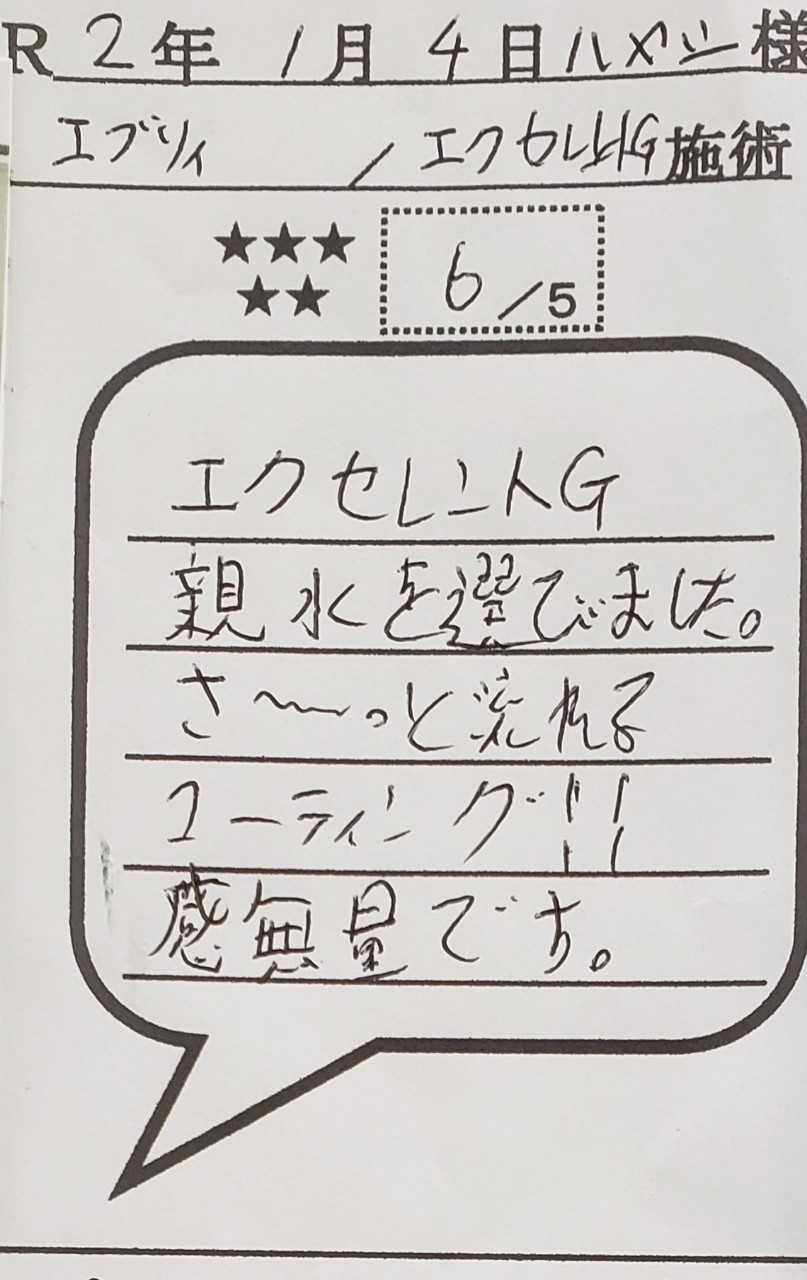 R2年1月4日ハメツー様
エブリィ / エクセレントG施術
★★★
★★
6/5
エクセレントG
親水を選びました。
さ〜〜っと流れる
コーティング!!
感無量です。